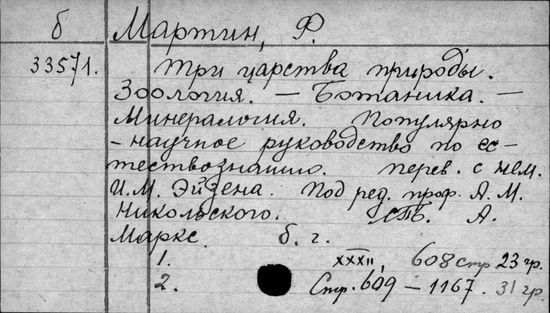 б Мартин, Р.
33571. Три царства природы.
Зоология. — Ботаника. —
Минералогия. Популярно
-научное руководство по ес-
тествознанию. перев. с нем.
И. М. Эйзена. Под ред. проф. А. М.
Никольского. СПБ. А.
Маркс. б. г.
1. XXXII, 608 стр 23 гр.
2. Стр. 609 — 1167. 31 гр.